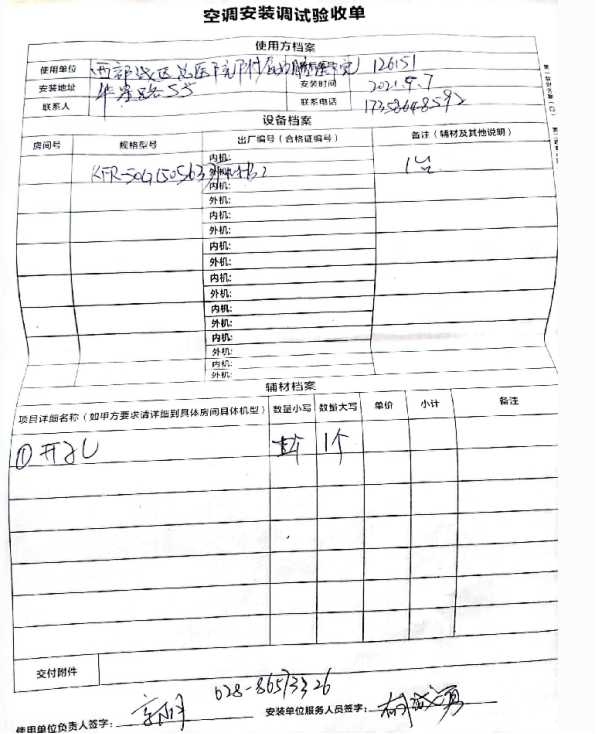 空调安装调试验收单
使用方档案
使用单位 西部战区总医院 126151
安装地址 安装时间 2021.5.7
联系人 联系电话 17358648592
设备档案
房间号 规格型号 出厂编号（合格证编号） 备注（辅材及其他说明）
内机:
KFR-50G 外机: 1台
内机:
外机:
内机:
外机:
内机:
外机:
内机:
外机:
内机:
外机:
内机:
外机:
内机:
外机:
辅材档案
项目详细名称（如甲方要求请详细到具体房间具体机型） 数量小写 数量大写 单价 小计 备注
①开孔 1个
交付附件
028-86573326
使用单位负责人签字: 安装单位服务人员签字: